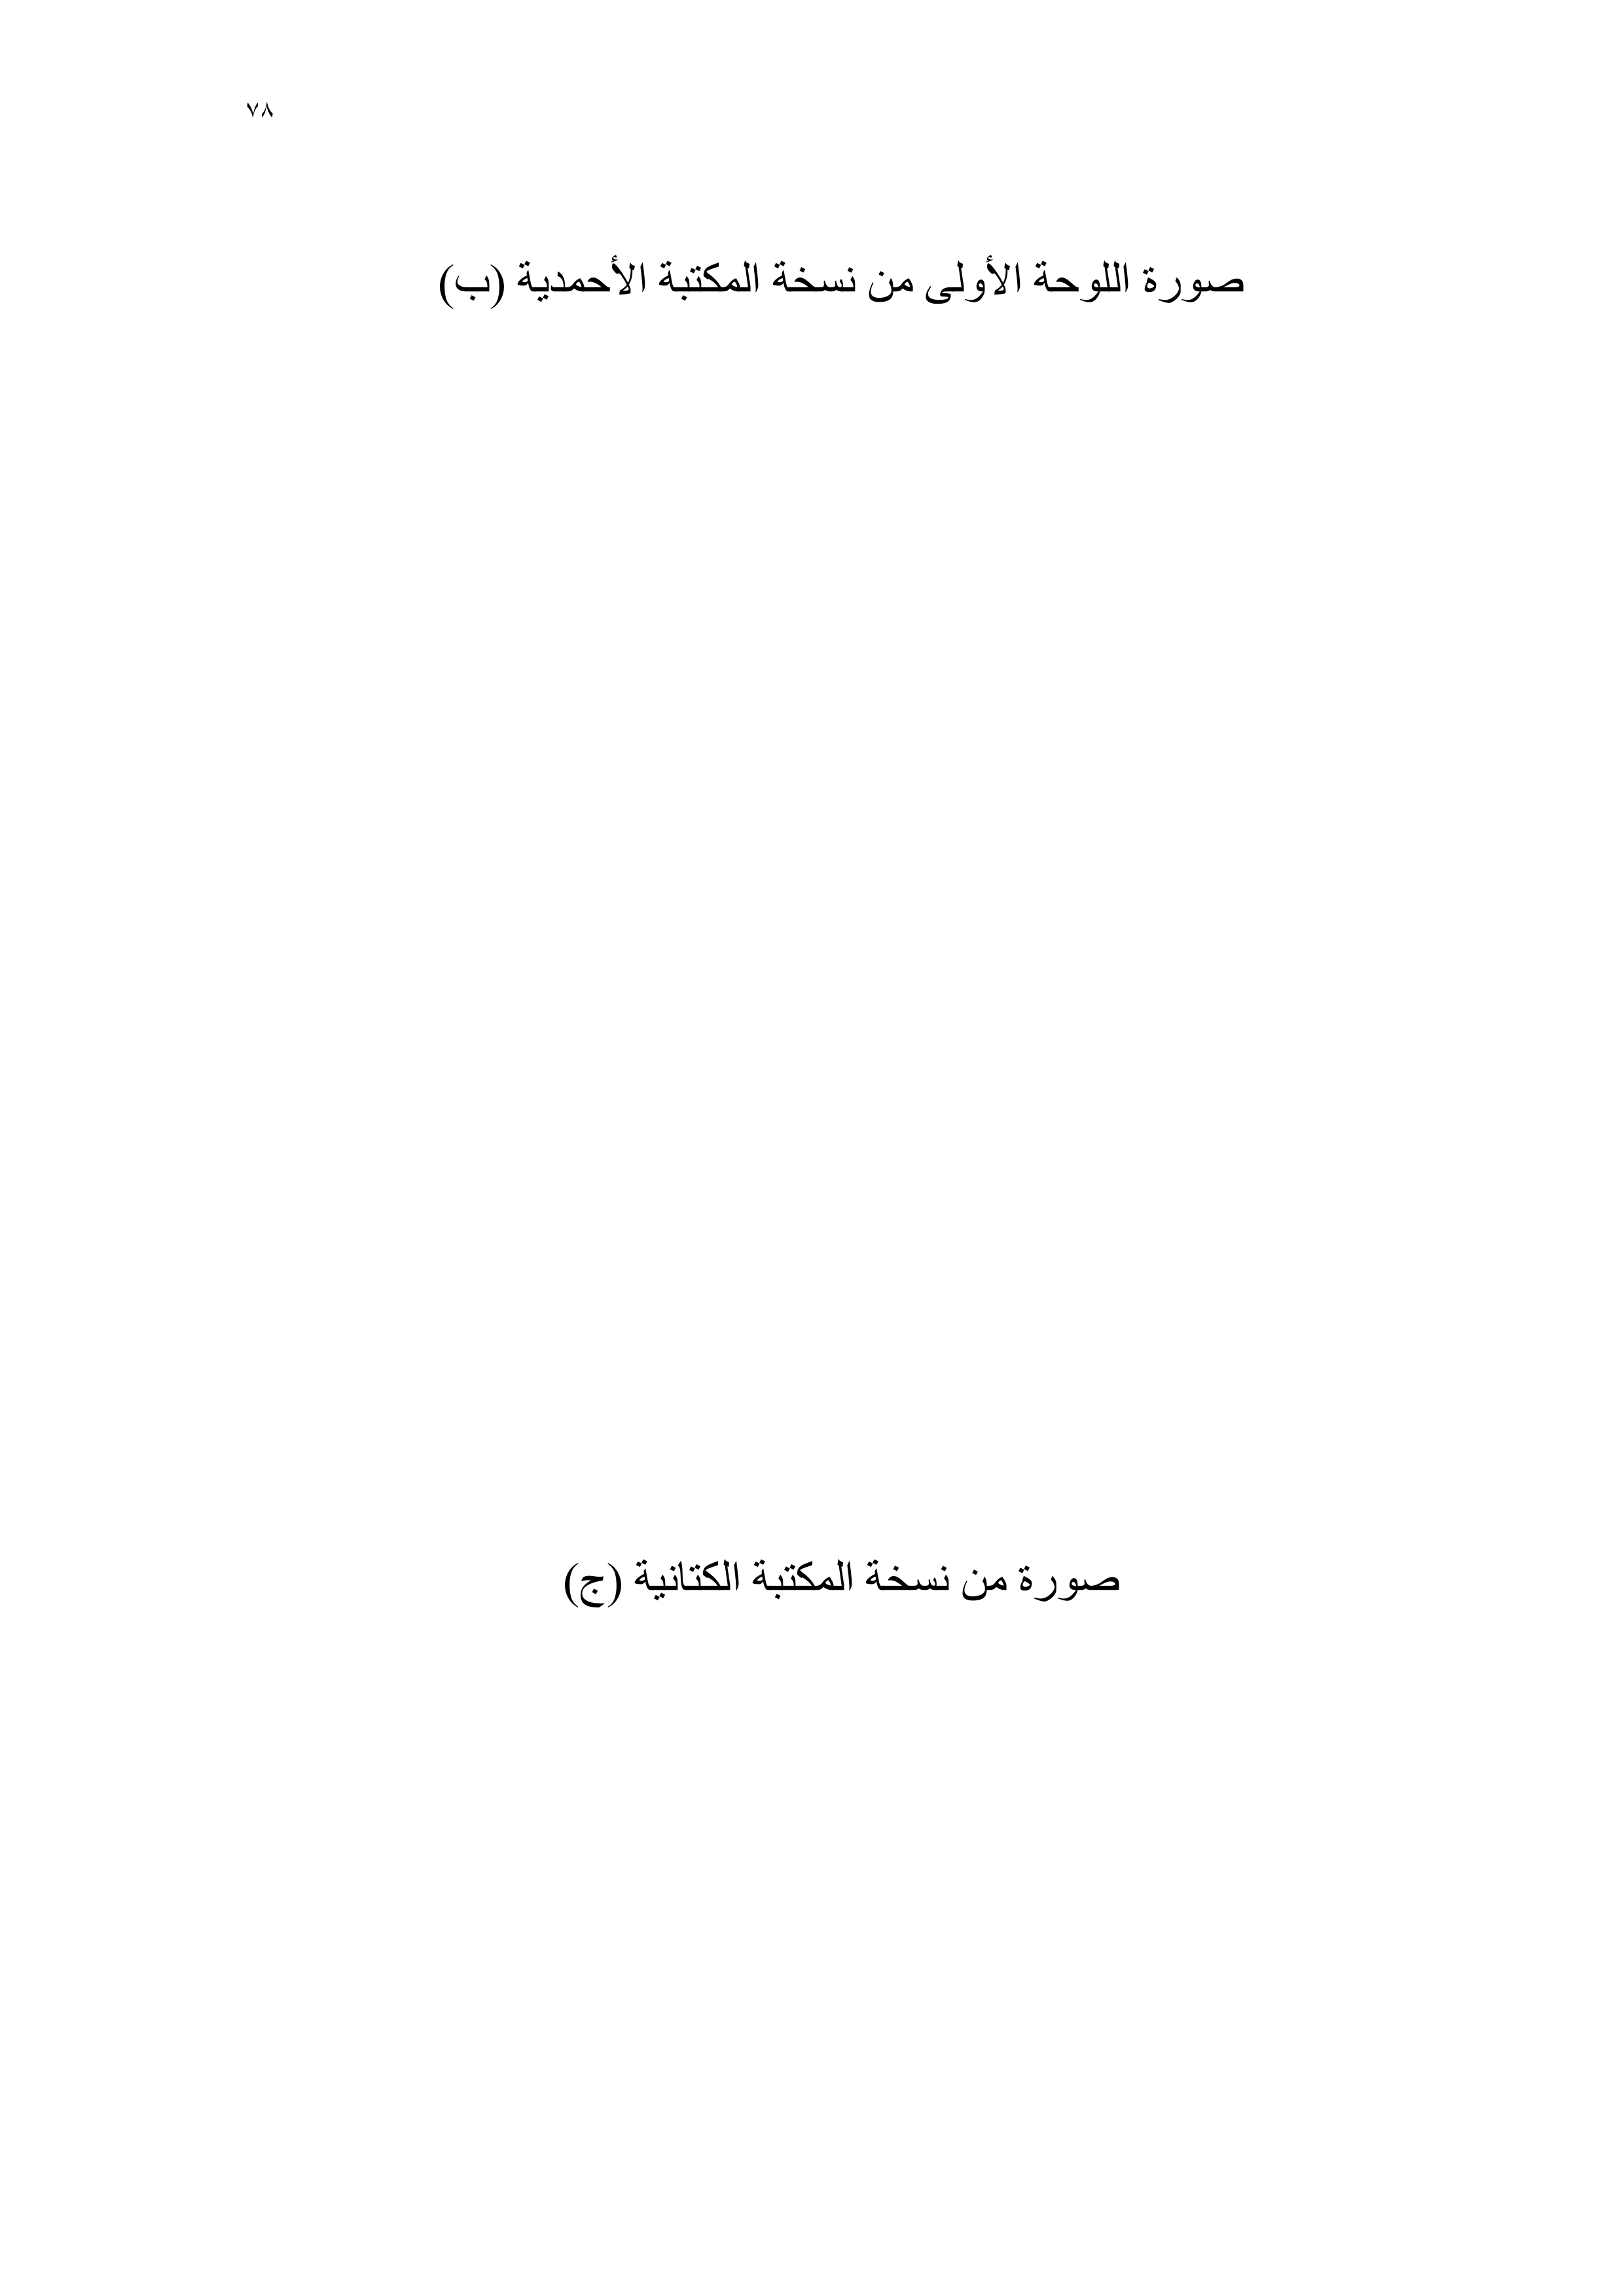 ٧٨
صورة اللوحة الأولى من نسخة المكتبة الأحمدية (ب)
صورة من نسخة المكتبة الكتانية (ج)